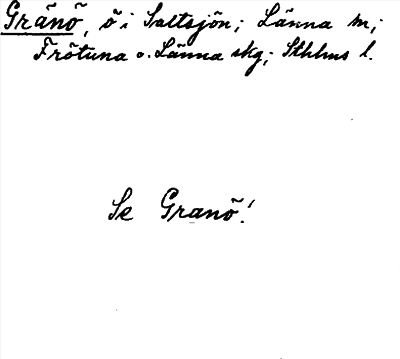 Gränö, ö i Saltsjön; Länna sn;
Frötuna o. Länna skg; Sthlms l.
Se Granö!